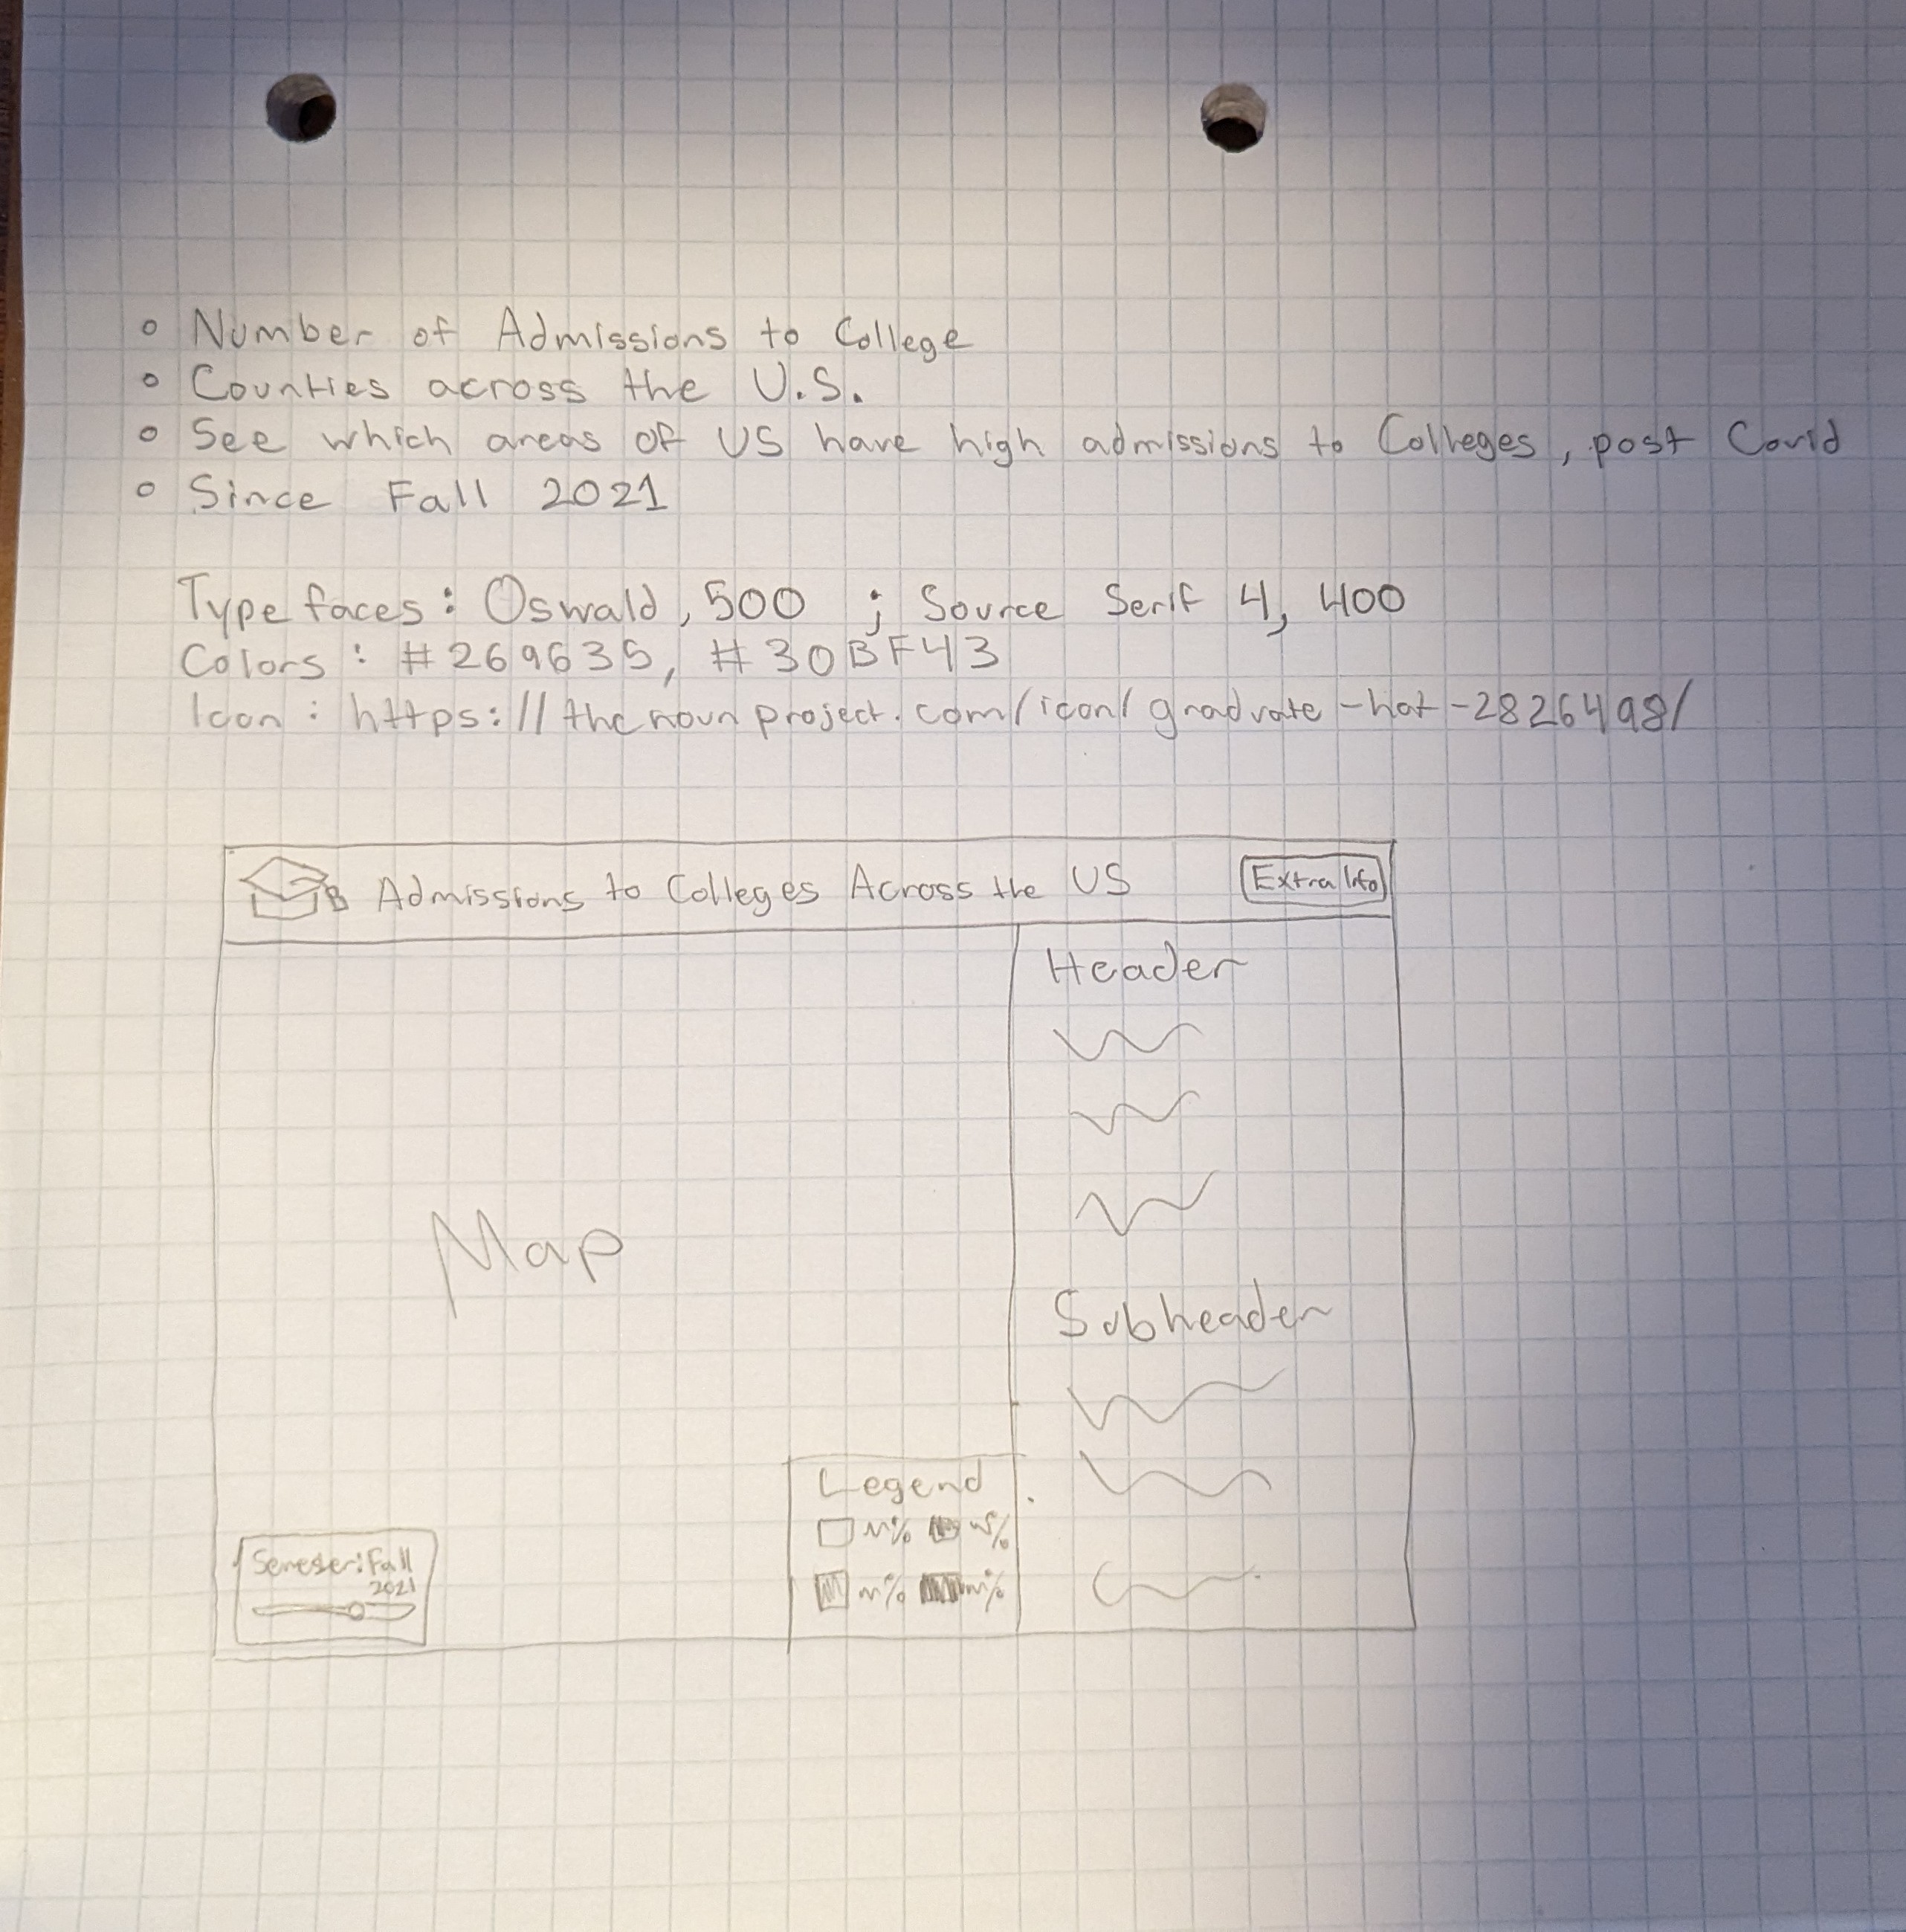 Number of Admissions to College
Counties across the U.S.
See which areas of US have high admissions to Colleges, post Covid
Since Fall 2021
Type faces: Oswald, 500 ; Source Serif 4, 400
Colors : #269635, #30BF43
Icon : https://thenounproject.com/icon/graduate-hat-2826498/
Admissions to Colleges Across the US
Extra Info
Header
Map
Subheader
Legend
%
%
%
%
Semester: Fall
2021